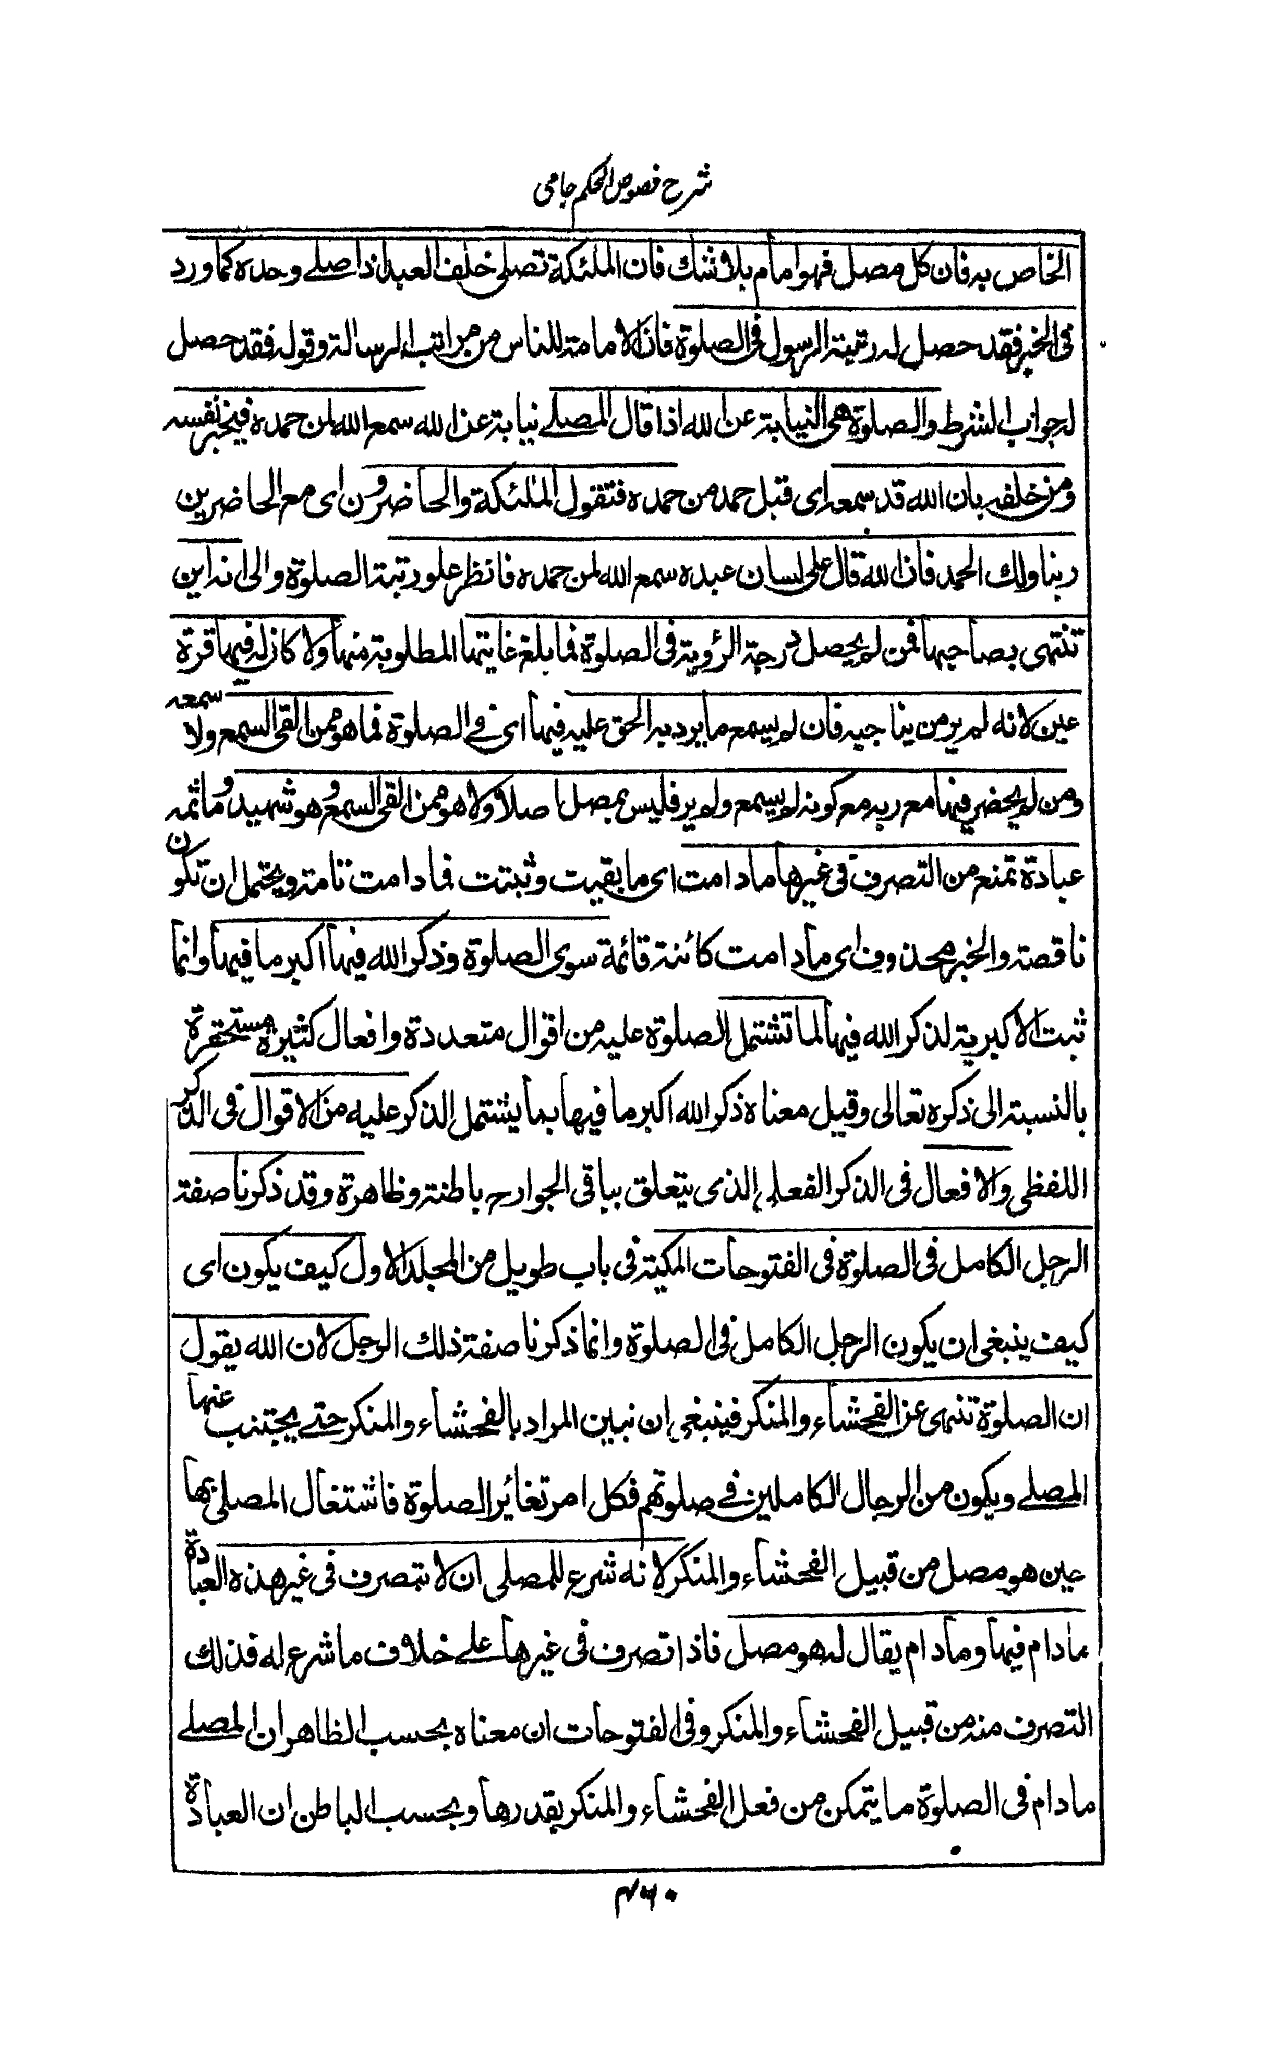 شرح فصوص الحكم جامی
الخاص به فان كل مصل فهو امام بلا شك فان الملئكة تصلى خلف العبد اذا صلے وحده كما ورد
فى الخبر فقد حصل له رتبة الرسول فى الصلوة فان الامامة للناس من مراتب الرسالة وقوله فقد حصل
له جواب الشرط والصلوة هى النيابة عن الله اذا قال المصلے نيابة عن الله سمع الله لمن حمده فيخبر نفسه
ومن خلفه بان الله قد سمعه اى قبل حمد من حمده فتقول الملئكة والحاضرون اى مع الحاضرين
ربنا ولك الحمد فان الله قال على لسان عبده سمع الله لمن حمده فانظر علو رتبة الصلوة والى انه اين
تنتهى بصاحبها فمن لم يحصل درجة الرؤية فى الصلوة فما بلغ غايتها المطلوبة منها ولا كان له فيها قرة
عين لانه لم ير من يناجيه فان لم يسمع ما يرد به الحق عليه فيها اى فے الصلوة فما هو ممن القى السمع ولا سمعه
ومن لم يحضر فيها مع ربه مع كونه لم يسمع ولم ير فليس بمصل اصلا ولا هو ممن القى السمع وهو شهيد وما ثمه
عبادة تمنع من التصرف فى غيرها ما دامت اى ما بقيت وثبتت فما دامت تامة ويحتمل ان تكون
ناقصة والخبر محذوف اى ما دامت كائنة قائمة سوى الصلوة وذكر الله فيها اكبر ما فيها وانما
ثبت الاكبرية لذكر الله فيها لما تشتمل الصلوة عليه من اقوال متعددة وافعال كثيرة مستحقرة
بالنسبة الى ذكره تعالى وقيل معناه ذكر الله اكبر ما فيها بما يشتمل الذكر عليه من الاقوال فى الذكر
اللفظى والافعال فى الذكر الفعلى الذى يتعلق بباقى الجوارح باطنة وظاهرة وقد ذكرنا صفة
الرجل الكامل فى الصلوة فى الفتوحات المكية فى باب طويل من المجلد الاول كيف يكون اى
كيف ينبغى ان يكون الرجل الكامل فى الصلوة وانما ذكرنا صفة ذلك الرجل لان الله يقول
ان الصلوة تنهى عن الفحشاء والمنكر فينبغى ان نبين المراد بالفحشاء والمنكر حتے يجتنب عنها
المصلے ويكون من الرجال الكاملين فے صلوتهم فكل امر تغائر الصلوة فاشتغال المصلى بها
عين هو مصل من قبيل الفحشاء والمنكر لانه شرع للمصلى ان لا يتصرف فى غير هذه العبادة
ما دام فيها وما دام يقال له هو مصل فاذا تصرف فى غيرها علے خلاف ما شرع له فذلك
التصرف منه من قبيل الفحشاء والمنكر وفى الفتوحات ان معناه بحسب الظاهر ان المصلے
ما دام فى الصلوة ما يتمكن من فعل الفحشاء والمنكر بقدرها وبحسب الباطن ان العبادة